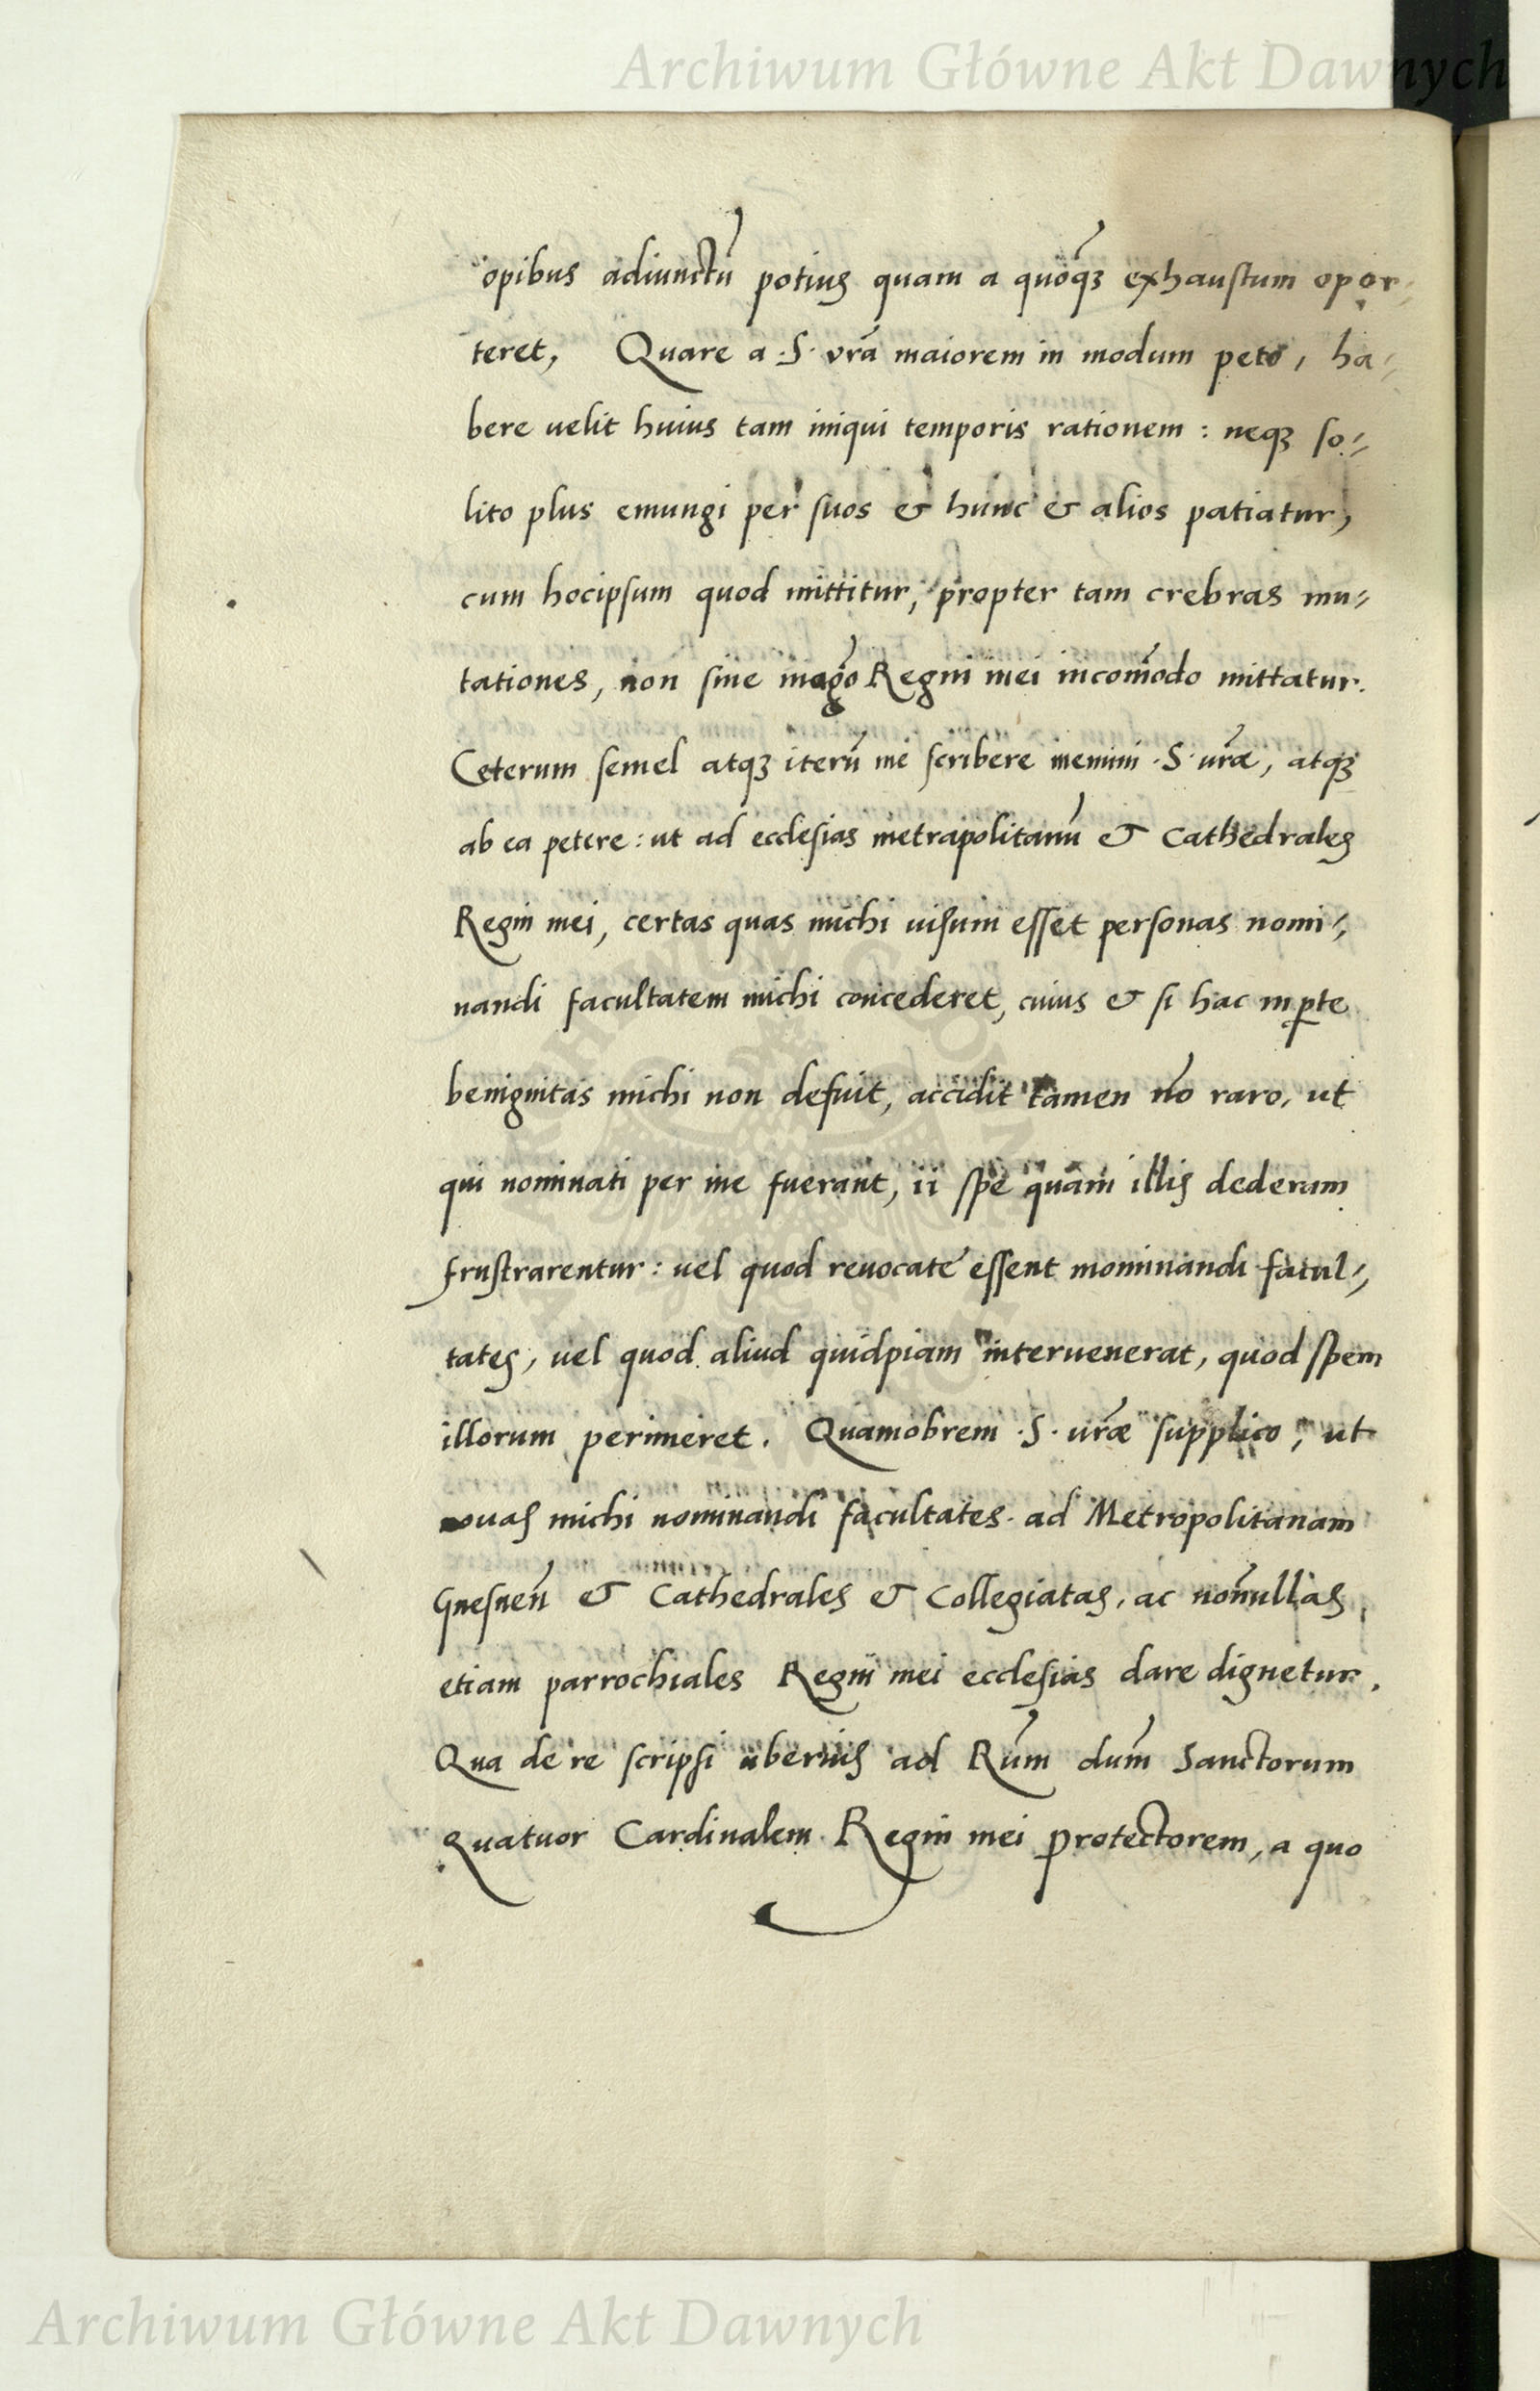 Archiwum Główne Akt Dawnych
opibus adiunctū potius quam a quoq̃ꝫ exhaustum opor⸗
teret, Quare a ·S· vrã maiorem in modum peto, ha⸗
bere uelit huius tam iniqui temporis rationem : neqꝫ so⸗
lito plus emungi per suos & hunc & alios patiatur,
cum hocipsum quod mittitur, propter tam crebras mu⸗
tationes, non sine magõ Regni mei incom̃odo mittatur.
Ceterum semel atqꝫ iterū me scribere memini ·S· uræ̃, atqꝫ
ab ea petere : ut ad ecclesias metrapolitanū & Cathedrales
Regni mei, certas quas michi uisum esset personas nomi⸗,
nandi facultatem michi concederet, cuius & si hac in ꝑte
benignitas michi non defuit, accidit tamen nõ raro, ut
qui nominati per me fuerant, ii spe quam illis dederam
frustrarentur : uel quod reuocate essent mominandi facul⸗,
tates, uel quod aliud quidpiam interuenerat, quod spem
illorum perimeret. Quamobrem ·S· uræ̃ supplico, ut
nouas michi nominandi facultates ad Metropolitanam
Gnesneñ & Cathedrales & Collegiatas, ac noñullas
etiam parrochiales Regni mei ecclesias dare dignetur.
Qua de re scripsi uberius ad Rũm dum̃ Sanctorum
Quatuor Cardinalem Regni mei protectorem, a quo
Archiwum Główne Akt Dawnych